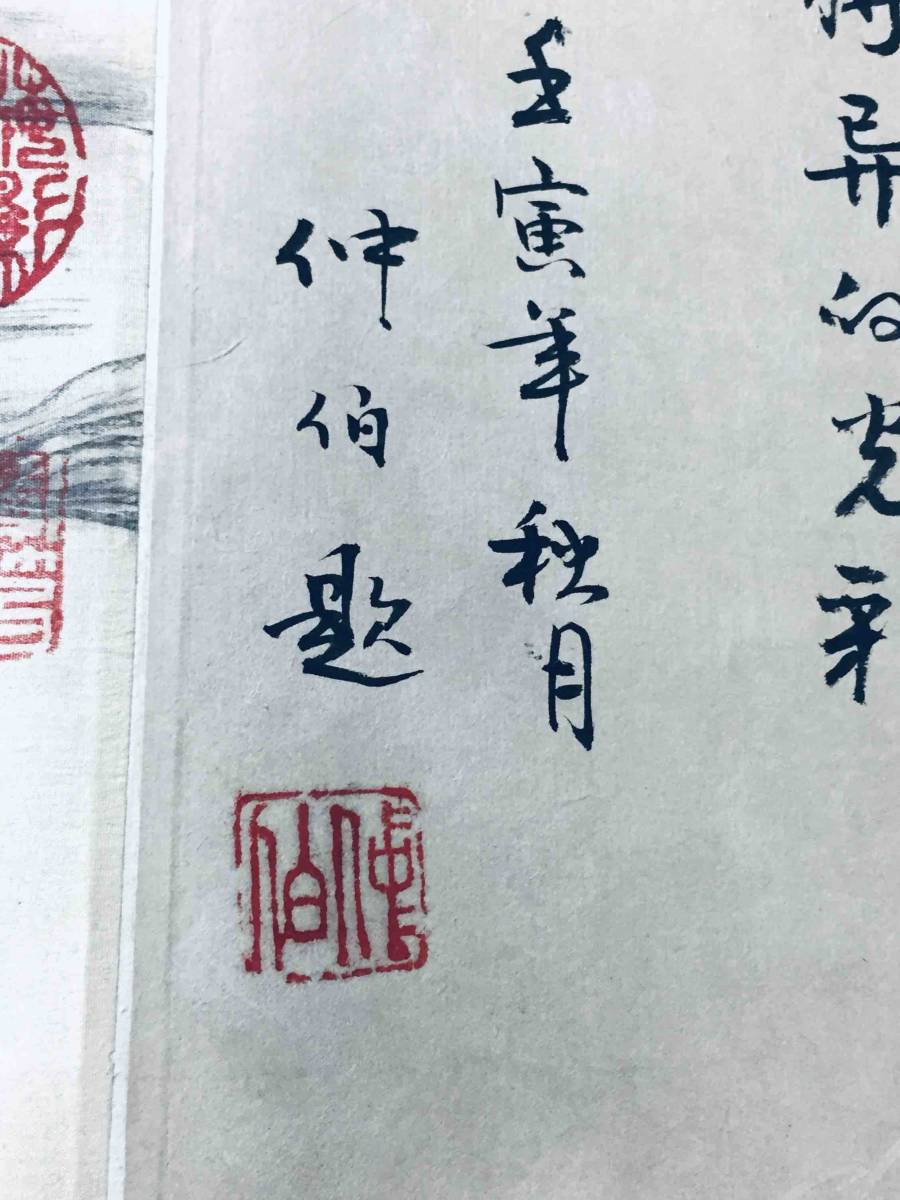 异的光彩
壬寅年秋月
仲伯题
仲伯